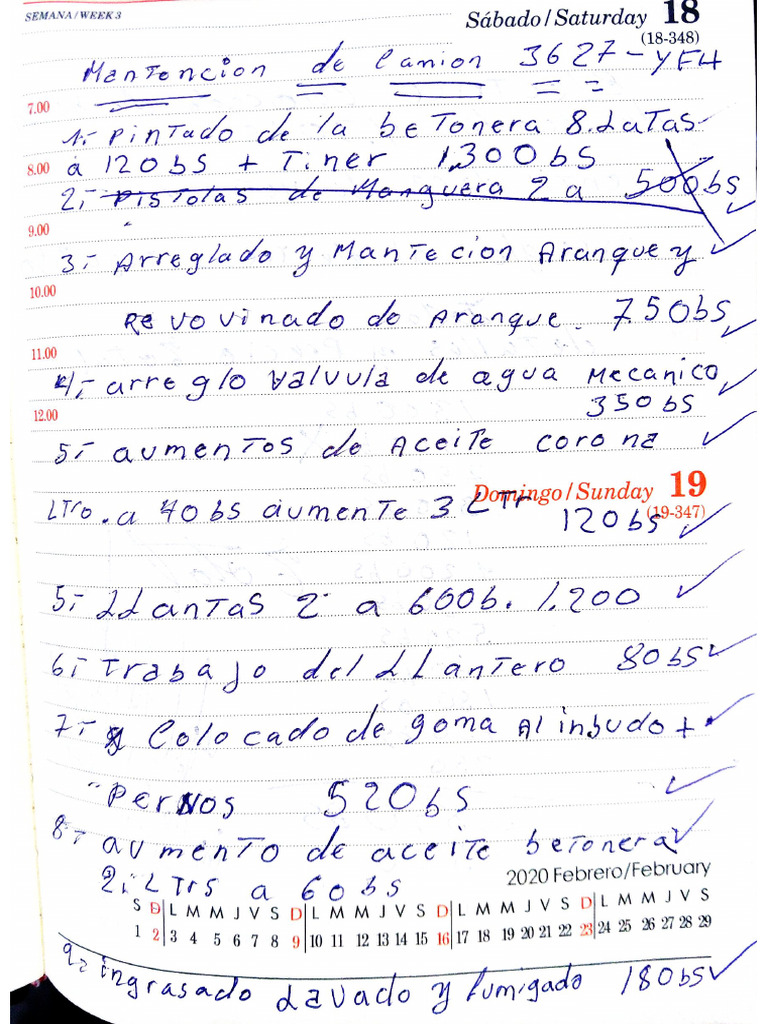 SEMANA/WEEK 3
Sábado/Saturday 18
(18-348)
Mantencion de Camion 3627-YFH
7.00
1,- Pintado de la betonera 8.Latas
8.00 a 120bs + Tiner 1,300bs
2,- Pistolas de Manguera 2 a 500bs
9.00
3,- Arreglado y Mantecion Aranque y
10.00
Revovinado de Aranque. 750bs
11.00
4,- arreglo Valvula de agua Mecanico
12.00
350bs
5,- aumentos de Aceite corona
Domingo/Sunday 19
(19-347)
LTro. a 40bs aumente 3 LTr
120bs
5,- LLantas 2 a 600b. 1.200
6,- Trabajo del LLantero 80bs
7,- Colocado de goma Al inbudo +
Pernos 520bs
8,- aumento de aceite betonera
2, LTrs a 60bs
2020 Febrero/February
S D L M M J V S D L M M J V S D L M M J V S D L M M J V S
1 2 3 4 5 6 7 8 9 10 11 12 13 14 15 16 17 18 19 20 21 22 23 24 25 26 27 28 29
9,- ingrasado Lavado y fumigado 180bs